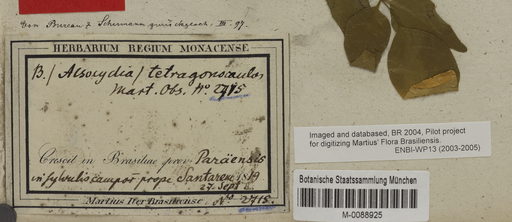 Von Bureau & Schumann zurückgesch. III. 97.
HERBARIUM REGIUM MONACENSE.
B. (Alsocydia) tetragonocaulos
Mart. Obs. No. 2715
Crescit in Brasiliae prov. Paraensis
in sylvulis campor. prope Santarem 1819
27. Sept.
Martius Iter Brasiliense, No 2715.
Imaged and databased, BR 2004, Pilot project
for digitizing Martius' Flora Brasiliensis.
ENBI-WP13 (2003-2005)
Botanische Staatssammlung München
M-0088925